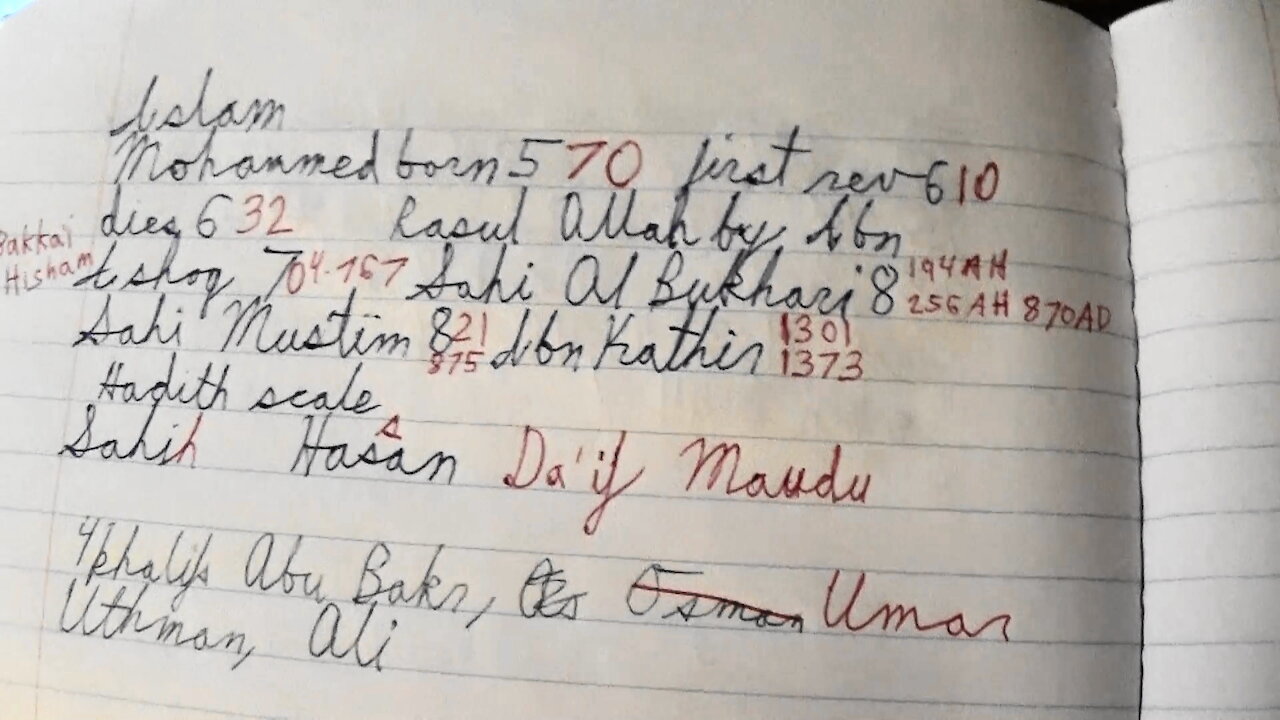 Islam
Mohammed born 570 first rev 610
dies 632 Rasul Allah by Ibn
Bakkai
Hisham
Ishaq 704-767 Sahi Al Bukhari 8 194AH
256AH 870AD
Sahi Mustim 821 Ibn Kathir 1301
875 1373
Hadith scale
Sahih Hasan Da'if Maudu
4 khalifs Abu Bakr, Osman Umar
Uthman, Ali